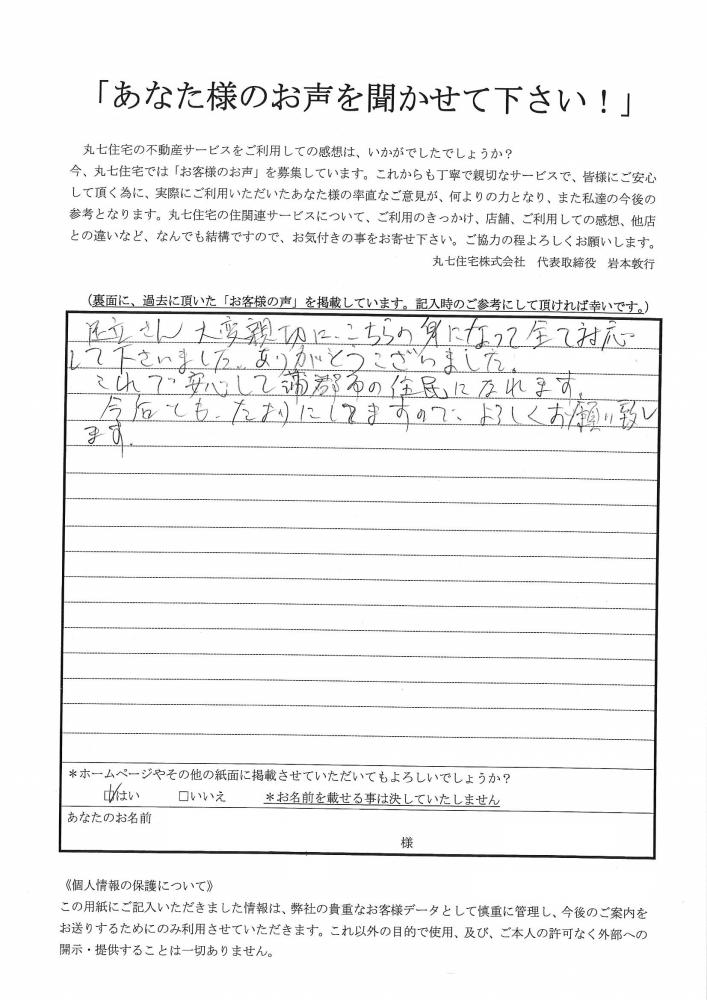 「あなた様のお声を聞かせて下さい！」
丸七住宅の不動産サービスをご利用しての感想は、いかがでしたでしょうか？
今、丸七住宅では「お客様のお声」を募集しています。これからも丁寧で親切なサービスで、皆様にご安心
して頂く為に、実際にご利用いただいたあなた様の率直なご意見が、何よりの力となり、また私達の今後の
参考となります。丸七住宅の住関連サービスについて、ご利用のきっかけ、店舗、ご利用しての感想、他店
との違いなど、なんでも結構ですので、お気付きの事をお寄せ下さい。ご協力の程よろしくお願いします。
丸七住宅株式会社　代表取締役　岩本敦行
（裏面に、過去に頂いた「お客様の声」を掲載しています。記入時のご参考にして頂ければ幸いです。）
足立さん 大変親切に、こちらの身になって全て対応
して下さいました。ありがとうございました。
これで安心して蒲郡市の住民になれます。
今后とも、たよりにしてますので、よろしくお願い致し
ます。
＊ホームページやその他の紙面に掲載させていただいてもよろしいでしょうか？
☑はい　□いいえ　＊お名前を載せる事は決していたしません
あなたのお名前
様
《個人情報の保護について》
この用紙にご記入いただきました情報は、弊社の貴重なお客様データとして慎重に管理し、今後のご案内を
お送りするためにのみ利用させていただきます。これ以外の目的で使用、及び、ご本人の許可なく外部への
開示・提供することは一切ありません。